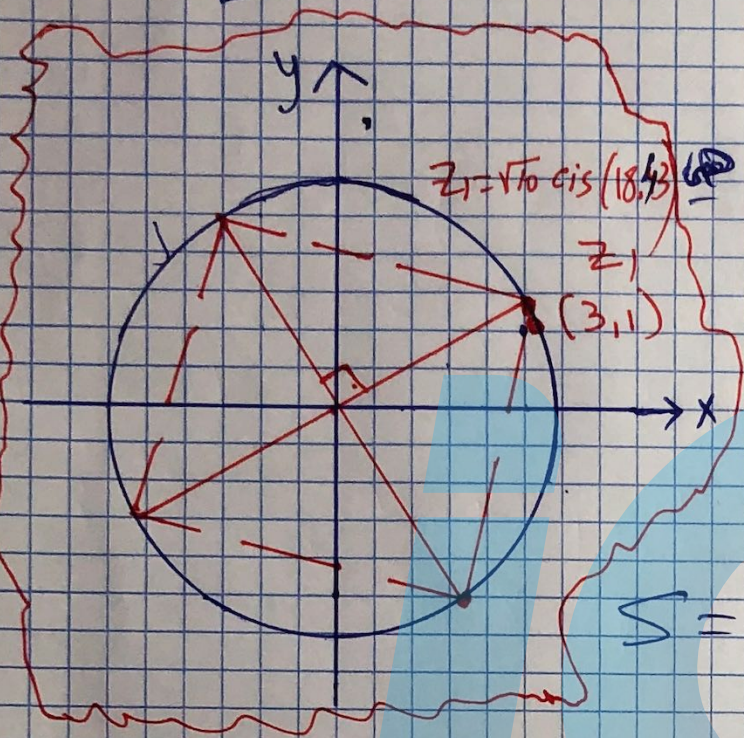 y
z₁ = √10 cis(18.43)
z₁
(3,1)
x
S =